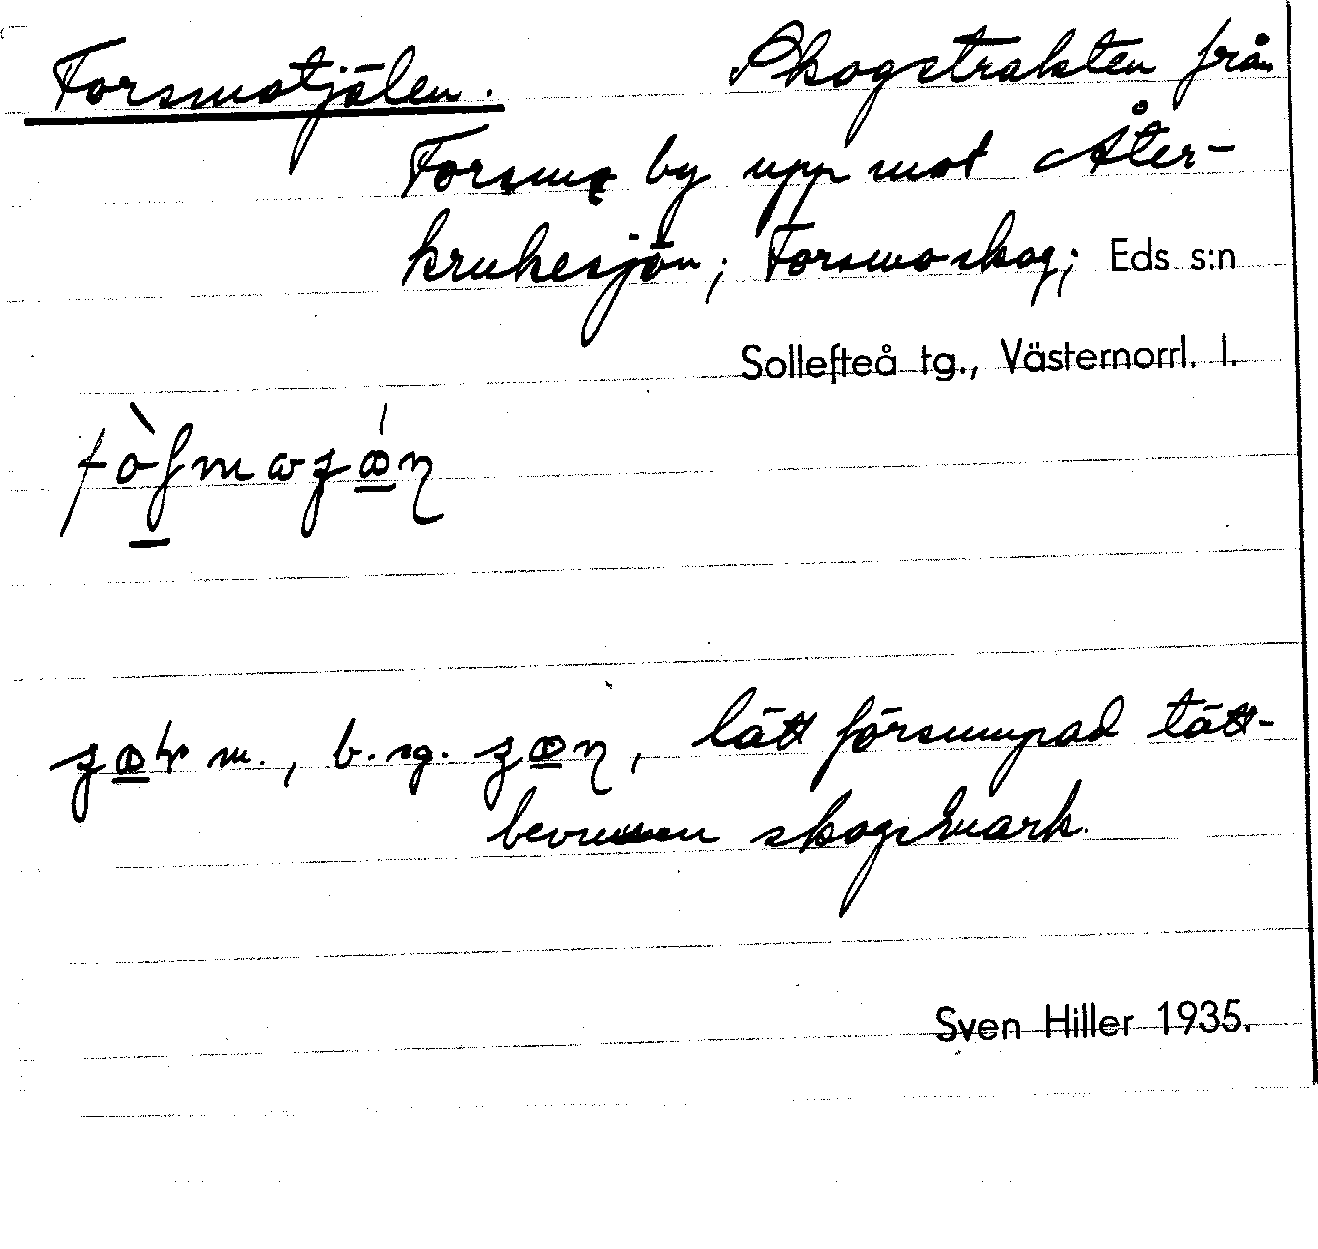 Forsmotjälen. Skogstrakten från
Forsmo by upp mot Åter-
krukesjön; Forsmoskog; Eds s:n
Sollefteå tg., Västernorrl. l.
m., b. sg. , lätt försumpad tätt-
bevuxen skogsmark.
Sven Hiller 1935.